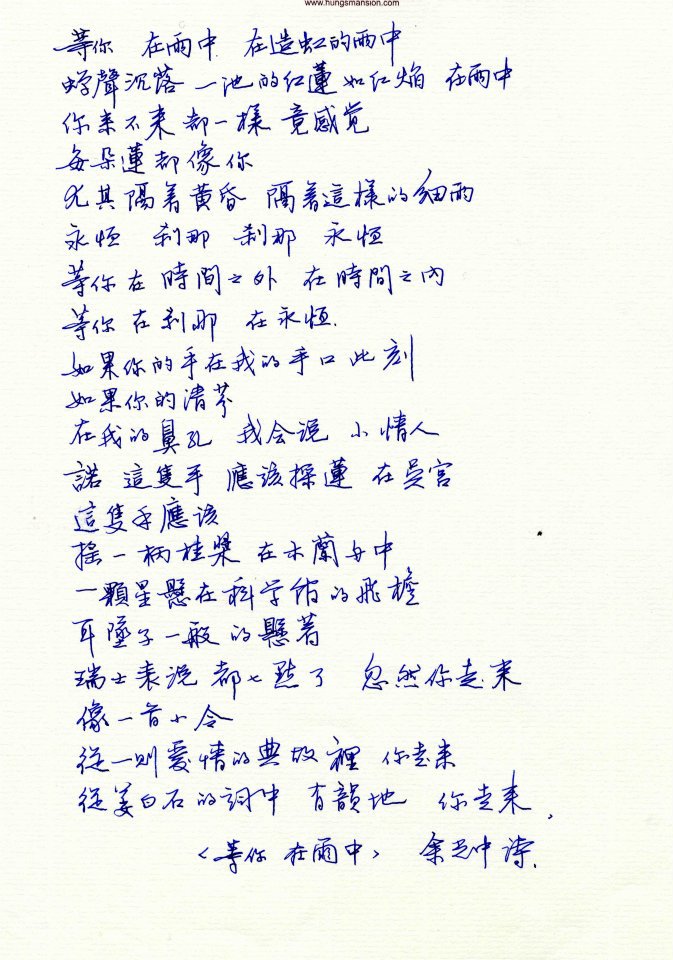 www.hungsmansion.com
等你 在雨中 在造虹的雨中
蟬聲沉落 一池的红蓮如红焰 在雨中
你来不来都一樣 竟感觉
每朵蓮都像你
尤其隔着黄昏 隔着這樣的细雨
永恒 刹那 刹那 永恒
等你在時間之外 在時間之內
等你在刹那 在永恒.
如果你的手在我的手口此刻
如果你的清芬
在我的鼻孔 我会说 小情人
諾 這隻手 應该採蓮 在吴宫
這隻手應该
摇一柄桂槳 在木蘭舟中
一顆星懸在科学馆的飛檐
耳墜子一般的懸著
瑞士表说 都七點了 忽然你走来
像一首小令
從一則爱情的典故裡 你走来
從姜白石的詞中 有韻地 你走来,
<等你 在雨中> 余光中 诗.